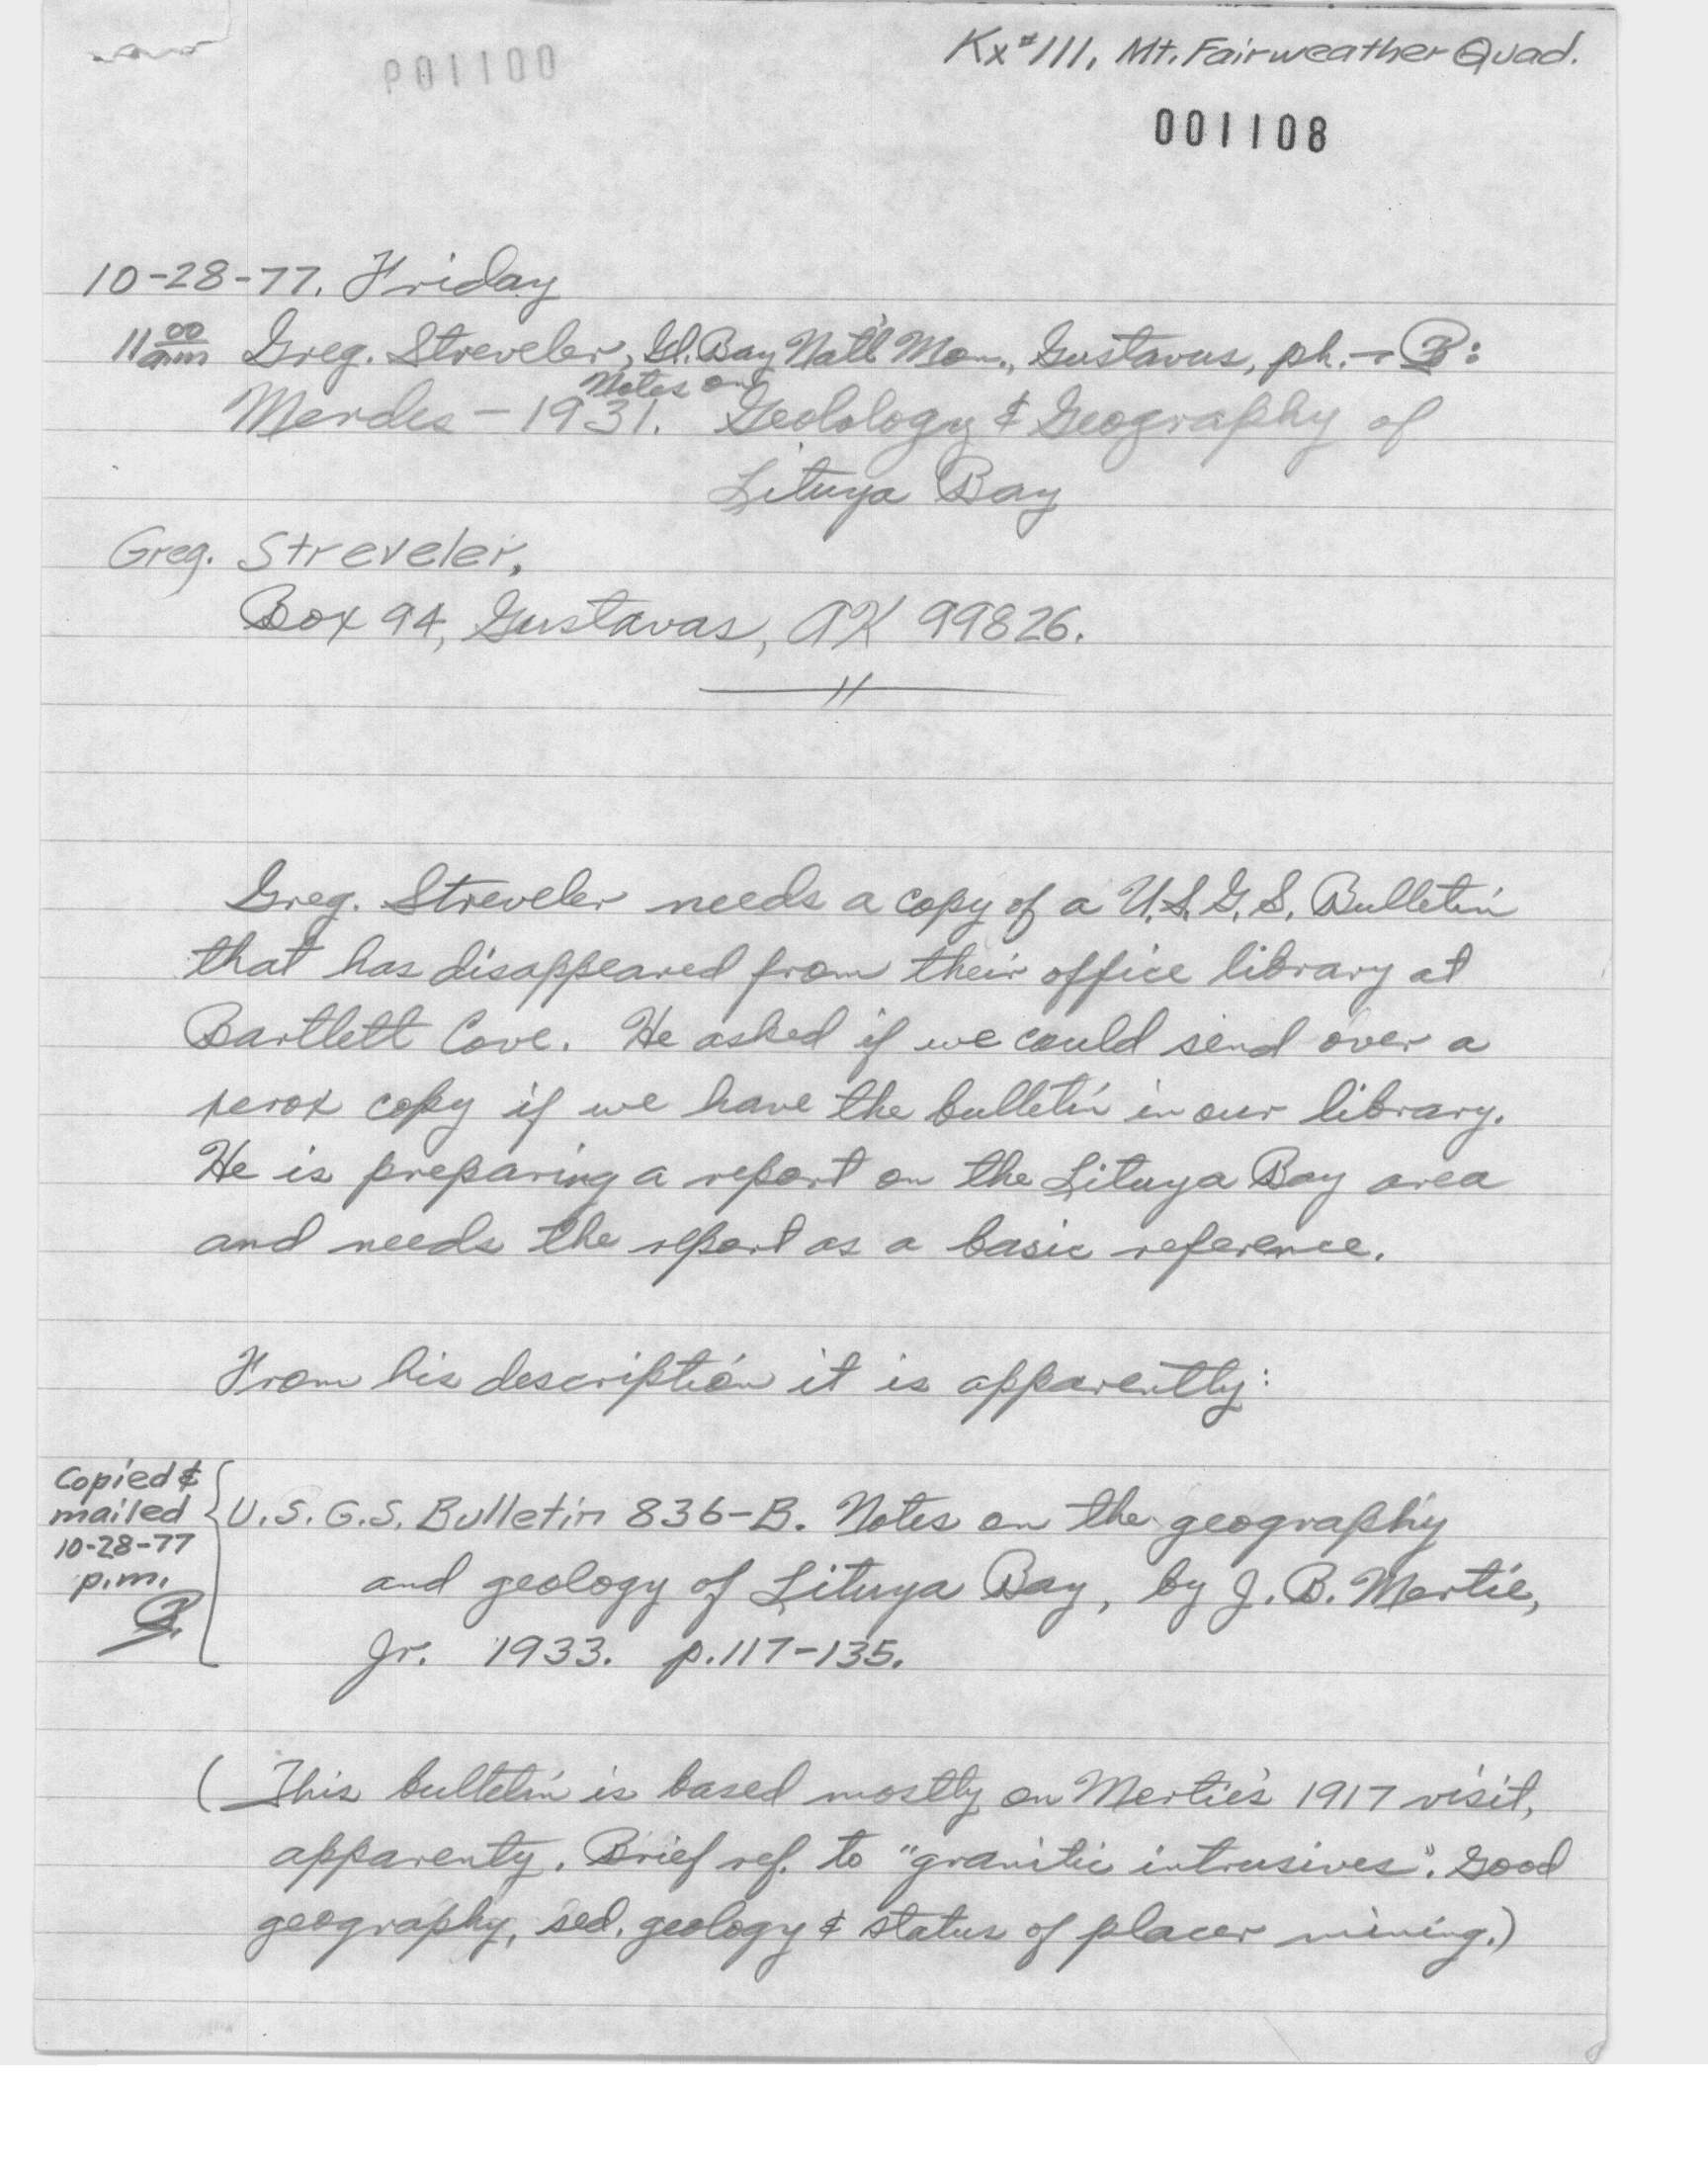 Kx#111, Mt. Fairweather Quad.
P01100
001108
10-28-77. Friday
11 00 am Greg. Streveler, Gl. Bay Nat'l Mon., Gustavus, ph. → B:
Notes on
Merdes - 1931. Geolology & Geography of
Lituya Bay
Greg. Streveler,
Box 94, Gustavas, AK 99826.
Greg. Streveler needs a copy of a U.S.G.S. Bulletin
that has disappeared from their office library at
Bartlett Cove. He asked if we could send over a
xerox copy if we have the bulletin in our library.
He is preparing a report on the Lituya Bay area
and needs the report as a basic reference.
From his description it is apparently:
Copied &
mailed
10-28-77
p.m.
B.
U.S.G.S. Bulletin 836-B. Notes on the geography
and geology of Lituya Bay, by J. B. Mertie,
Jr. 1933. p. 117-135.
(This bulletin is based mostly on Mertie's 1917 visit,
apparenty. Brief ref. to "granitic intrusives". Good
geography, sed. geology & status of placer mining.)